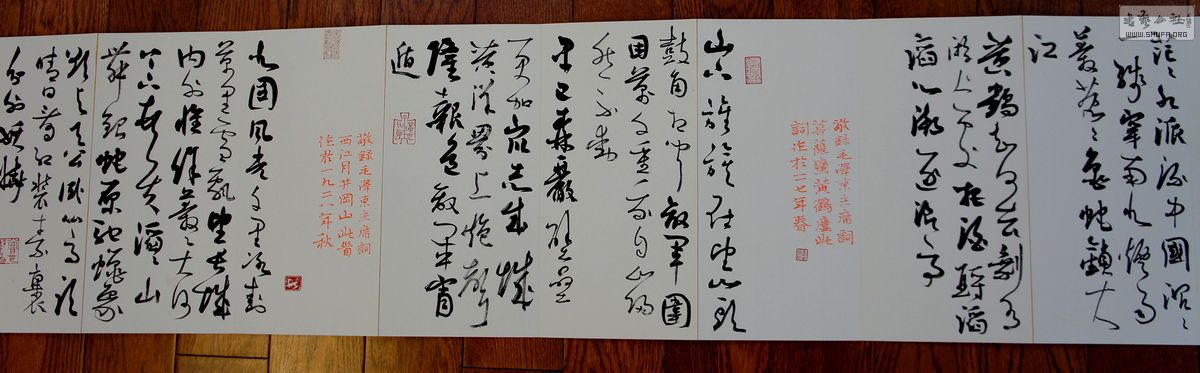 茫〻九派流中國沉〻
一線穿南北煙雨
莽蒼〻龜蛇鎖大
江
黃鶴知何去剩有
遊人處把酒酹滔
滔心潮逐浪高
敬錄毛澤東主席詞
菩薩蠻黃鶴樓此
詞作於二七年春
山下旌旗在望山頭
鼓角相聞敵軍圍
困萬千重我自巋
然不動
早已森嚴壁壘
更加眾志成城
黃洋界上炮聲
隆報道敵軍宵
遁
敬錄毛澤東主席詞
西江月井岡山此首
作於一九二八年秋
北國風光千里冰封
萬里雪飄望長城
內外惟餘莽〻大河
上下頓失滔〻山
舞銀蛇原馳蠟象
欲與天公試比高須
晴日看紅裝素裹
分外妖嬈
書藝公社
WWW.SHUFA.ORG